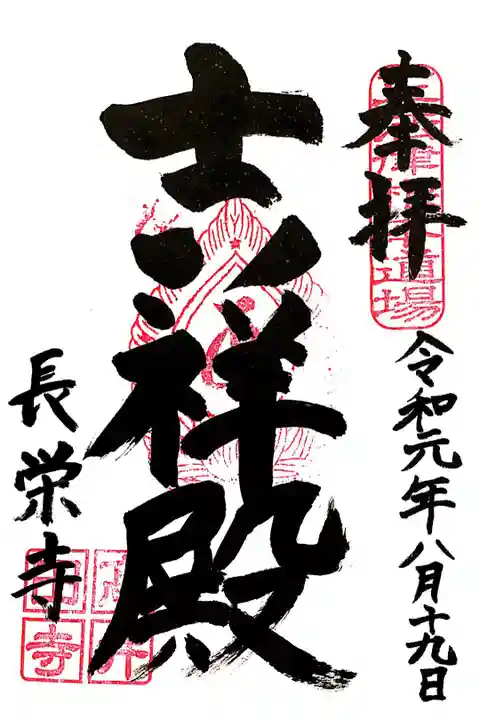 奉拝
道場
令和元年八月十九日
吉祥殿
長栄寺
寺